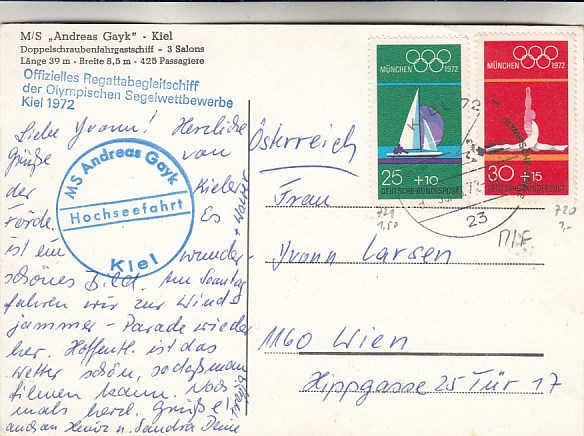 M/S „Andreas Gayk" - Kiel
Doppelschraubenfahrgastschiff - 3 Salons
Länge 39 m - Breite 8,5 m - 425 Passagiere
Offizielles Regattabegleitschiff
der Olympischen Segelwettbewerbe
Kiel 1972
Liebe Yvonn! Herzliche
Grüße von
der Kieler
Förde. Es
ist ein wunder-
schönes Bild. Am Sonntag
fahren wir zur Wind-
jammer-Parade wieder
her. Hoffentl. ist das
Wetter schön, sodaß man
filmen kann. Noch-
mals herzl. Grüße!
auch an Heinz u. Sandra Deine
+ Walter
MS Andreas Gayk
Hochseefahrt
Kiel
MÜNCHEN 1972
25 +10
DEUTSCHE BUNDESPOST
MÜNCHEN 1972
30 +15
DEUTSCHE BUNDESPOST
KIEL 72
23
719
1,50
720
M/F
Österreich
Frau
Yvonn Larsen
1160 Wien
Hippgasse 25 Tür 17